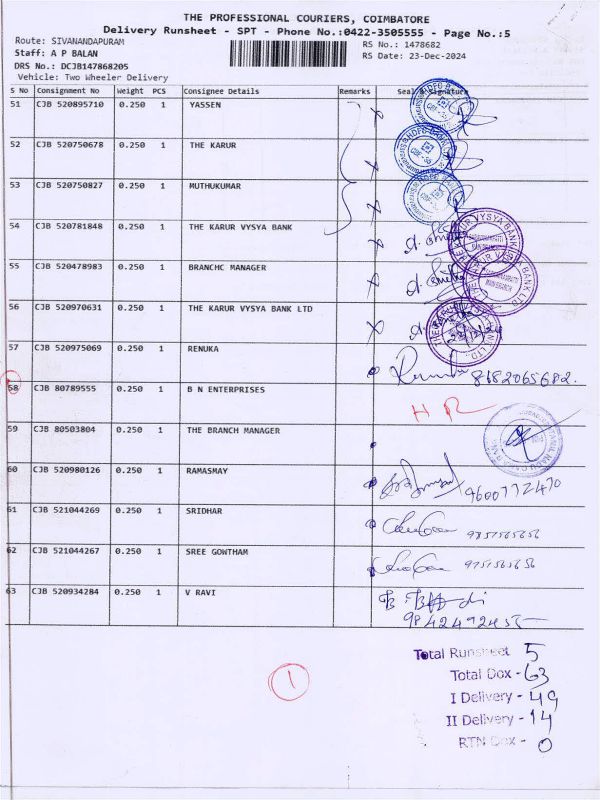 THE PROFESSIONAL COURIERS, COIMBATORE
Delivery Runsheet - SPT - Phone No.:0422-3505555 - Page No.:5
Route: SIVANANDAPURAM
RS No.: 1478682
Staff: A P BALAN
RS Date: 23-Dec-2024
DRS No.: DCJB147868205
Vehicle: Two Wheeler Delivery
S No Consignment No Weight PCS Consignee Details Remarks Seal & Signature
51 CJB 520895710 0.250 1 YASSEN
52 CJB 520750678 0.250 1 THE KARUR
53 CJB 520750827 0.250 1 MUTHUKUMAR
54 CJB 520781848 0.250 1 THE KARUR VYSYA BANK
55 CJB 520478983 0.250 1 BRANCHC MANAGER
56 CJB 520970631 0.250 1 THE KARUR VYSYA BANK LTD
57 CJB 520975069 0.250 1 RENUKA 8682065682.
58 CJB 80789555 0.250 1 B N ENTERPRISES H R
59 CJB 80503804 0.250 1 THE BRANCH MANAGER
60 CJB 520980126 0.250 1 RAMASMAY 9600772470
61 CJB 521044269 0.250 1 SRIDHAR
62 CJB 521044267 0.250 1 SREE GOWTHAM 9751565656
63 CJB 520934284 0.250 1 V RAVI
9842492455
Total Runsheet 5
Total Dox - 63
I Delivery - 49
II Delivery - 14
RTN Dox - 0
1